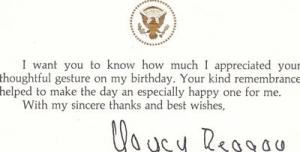 I want you to know how much I appreciated your
thoughtful gesture on my birthday. Your kind remembrance
helped to make the day an especially happy one for me.
With my sincere thanks and best wishes,
Nancy Reagan